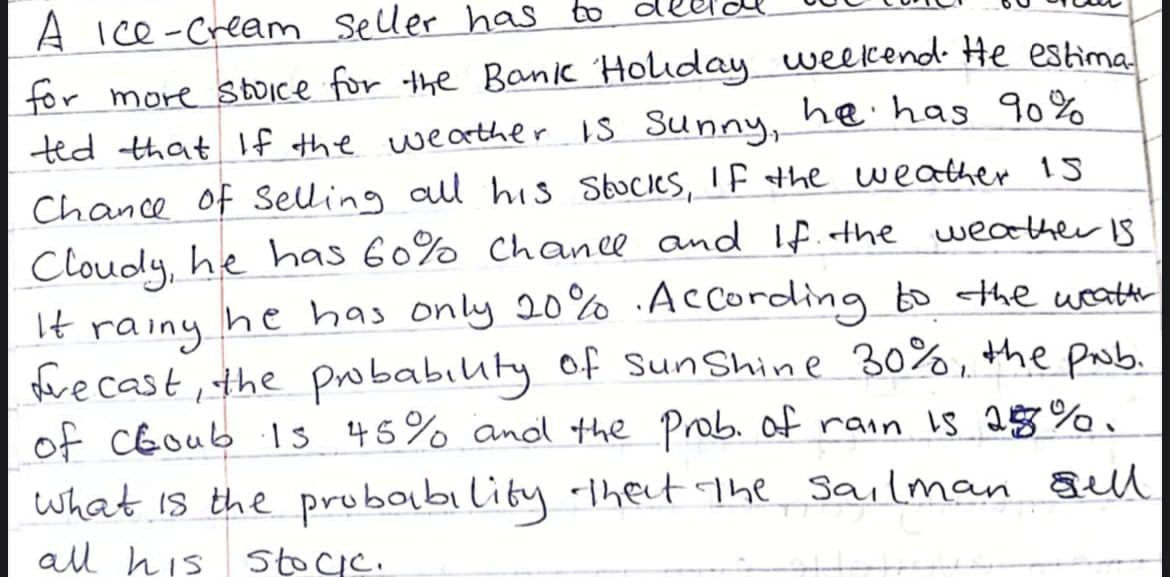 A Ice-Cream Seller has to
for more stoice for the Bank Holiday weekend. He estima-
ted that If the weather is Sunny, he has 90%
Chance of Selling all his Stocks, IF the weather is
Cloudy, he has 60% Chance and If the weather is
It rainy he has only 20%. According to the weathr
forecast, the probability of SunShine 30%, the prob.
of Cloub is 45% and the Prob. of rain is 25%.
What is the probability that the Sailman Sell
all his Stock.